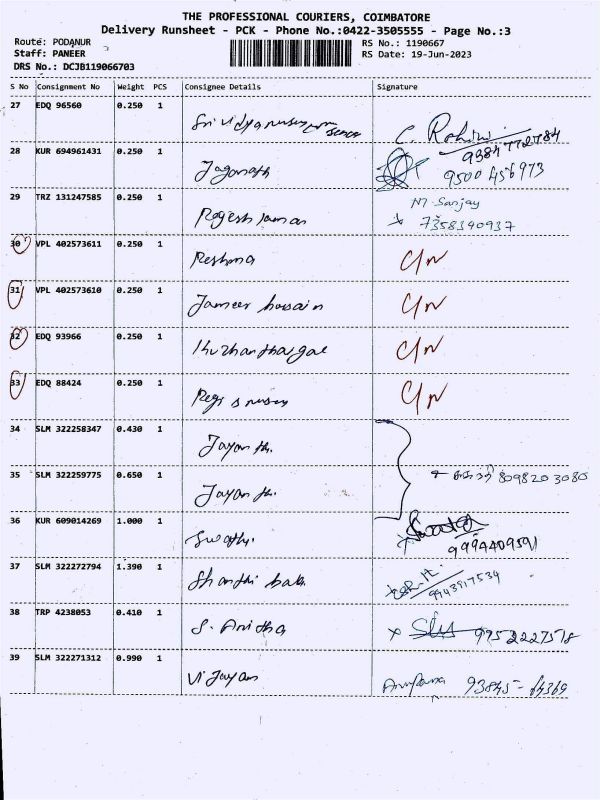 THE PROFESSIONAL COURIERS, COIMBATORE
Delivery Runsheet - PCK - Phone No.:0422-3505555 - Page No.:3
Route: PODANUR RS No.: 1190667
Staff: PANEER RS Date: 19-Jun-2023
DRS No.: DCJB119066703
S No Consignment No Weight PCS Consignee Details Signature
27 EDQ 96560 0.250 1 Sri Vidya C. Rohini
9384772784
28 KUR 694961431 0.250 1 Jaganath 9500 456973
29 TRZ 131247585 0.250 1 Rogesh M. Sanjay
7358340937
30 VPL 402573611 0.250 1 Reshma C/N
31 VPL 402573610 0.250 1 Jameer hussain C/N
32 EDQ 93966 0.250 1 C/N
33 EDQ 88424 0.250 1 C/N
34 SLM 322258347 0.430 1 Jayanthi.
35 SLM 322259775 0.650 1 Jayanthi. 8098203080
36 KUR 609014269 1.000 1 Swathi.
9994409591
37 SLM 322272794 1.390 1 Shanthi bala 9943917534
38 TRP 4238053 0.410 1 S. Anitha x 9752227578
39 SLM 322271312 0.990 1 Vijayan Anupama 93845-64369